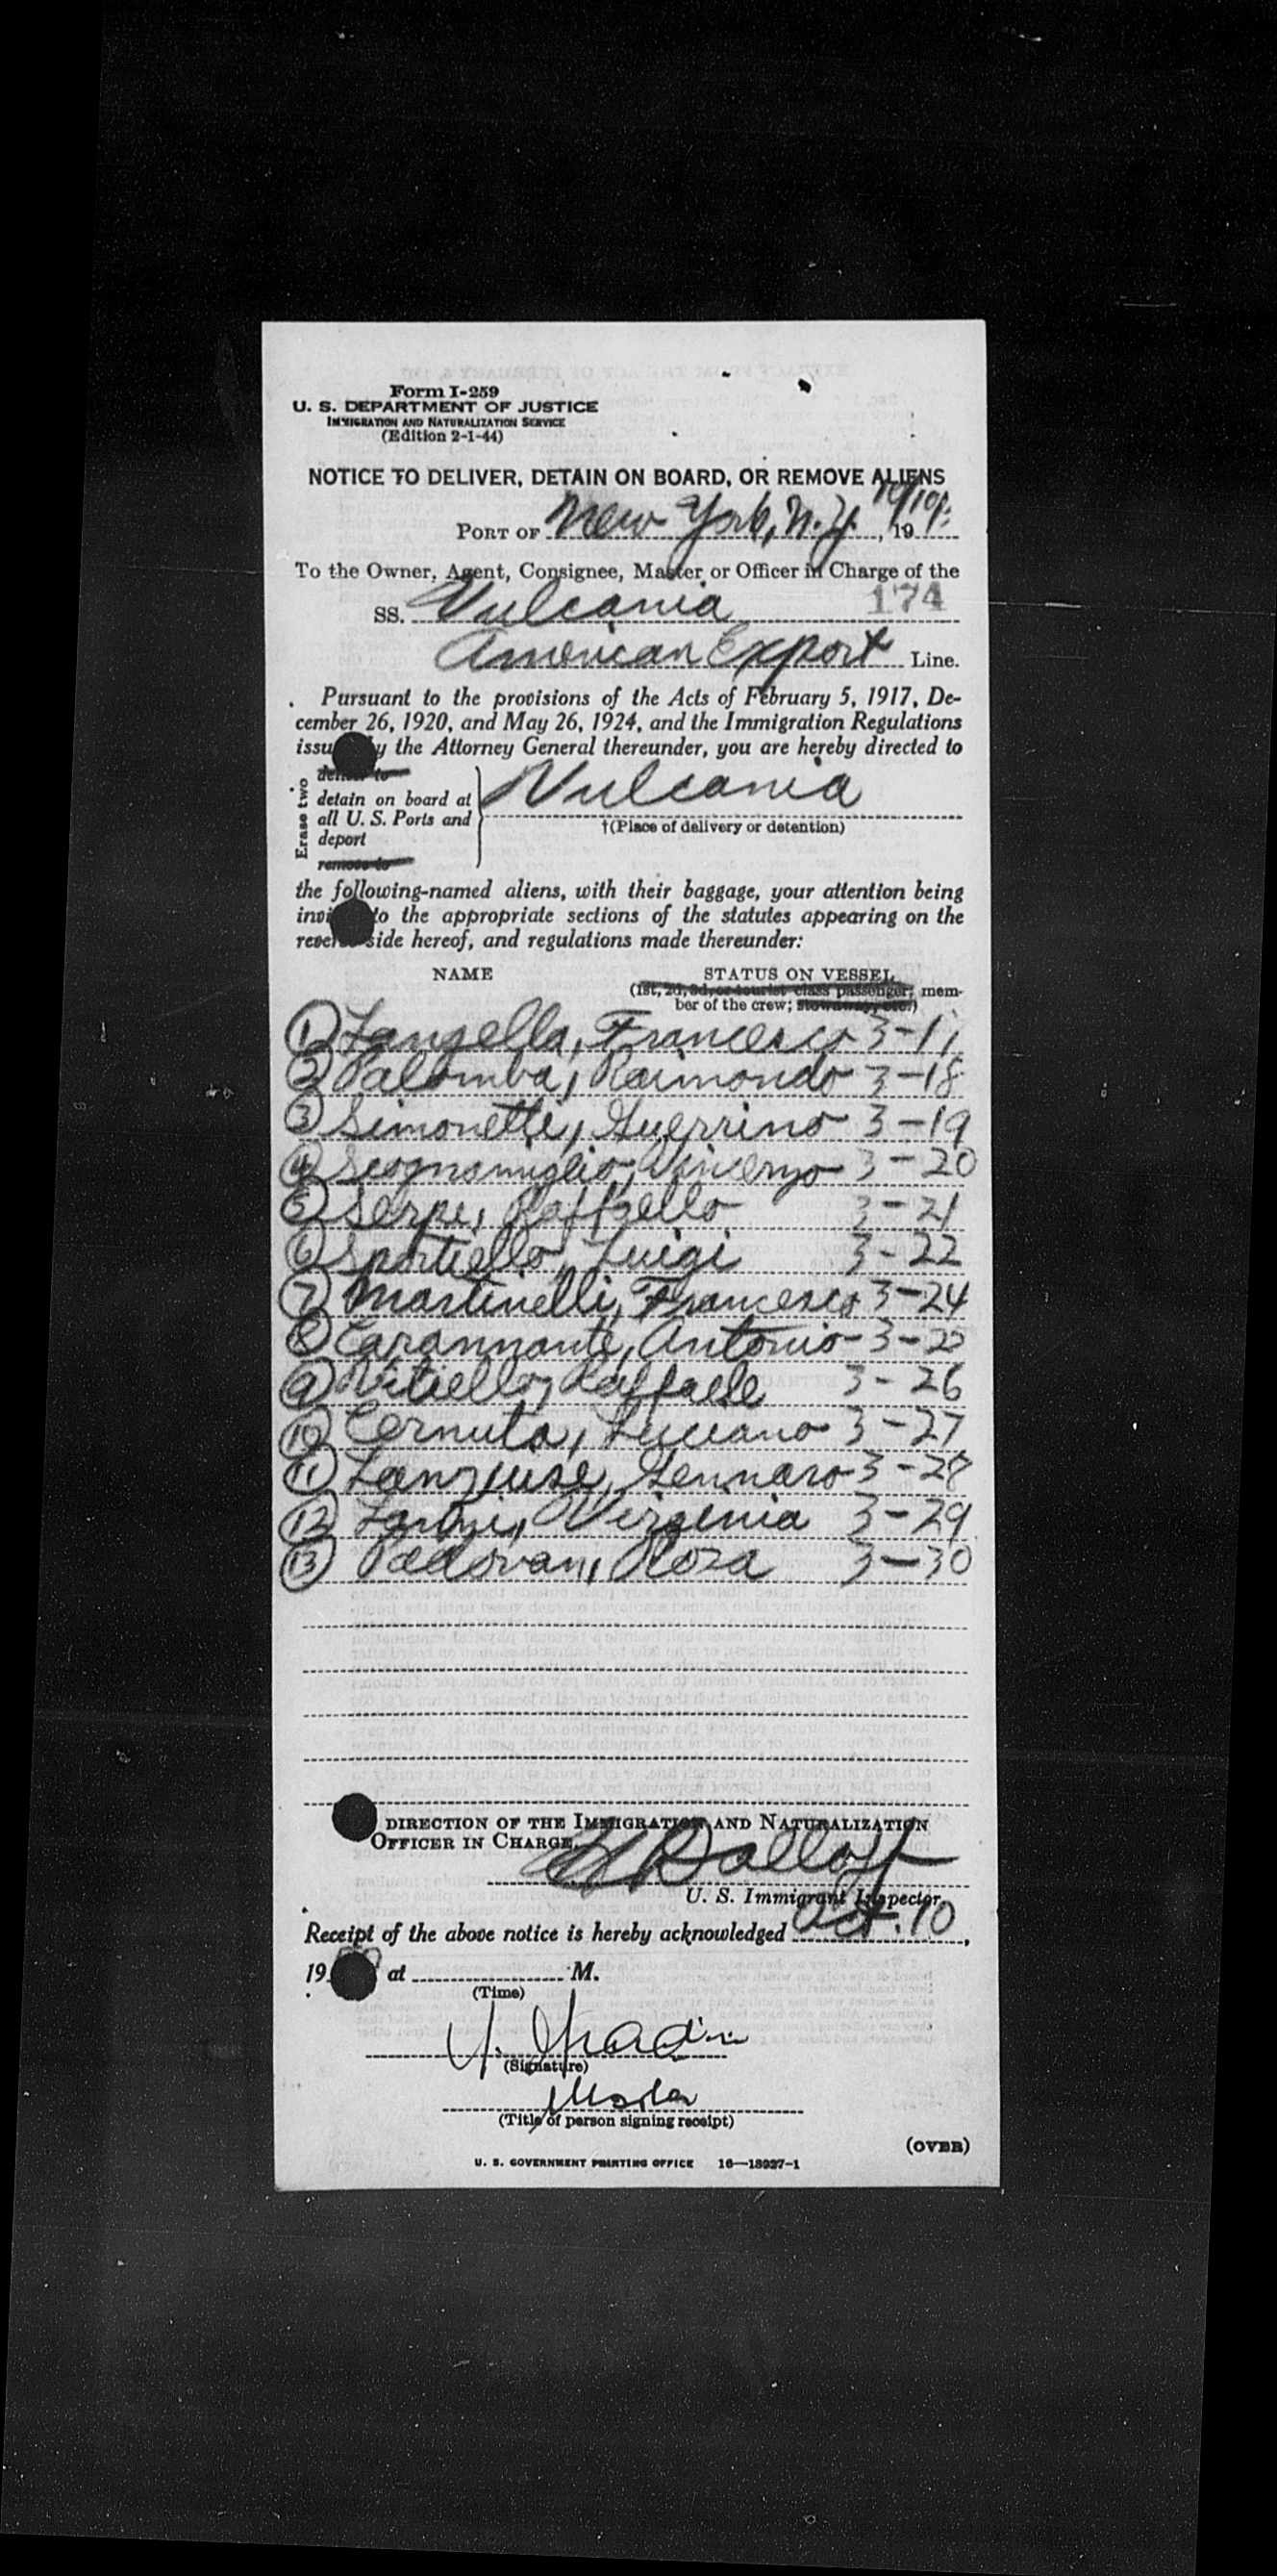 Form I-259
U. S. DEPARTMENT OF JUSTICE
IMMIGRATION AND NATURALIZATION SERVICE
(Edition 2-1-44)
NOTICE TO DELIVER, DETAIN ON BOARD, OR REMOVE ALIENS
PORT OF New York, N.Y. 10/10, 19
To the Owner, Agent, Consignee, Master or Officer in Charge of the
SS. Vulcania 174
American Export Line.
Pursuant to the provisions of the Acts of February 5, 1917, De-
cember 26, 1920, and May 26, 1924, and the Immigration Regulations
issu y the Attorney General thereunder, you are hereby directed to
Erase two
deliver to
detain on board at
all U. S. Ports and
deport
remove to
Vulcania
†(Place of delivery or detention)
the following-named aliens, with their baggage, your attention being
invi to the appropriate sections of the statutes appearing on the
reverse side hereof, and regulations made thereunder:
NAME STATUS ON VESSEL
(1st, 2d, 3d, or tourist class passenger; mem-
ber of the crew; stowaway, etc.)
1 Langella, Francesco 3-17
2 Palomba, Raimondo 3-18
3 Simonetti, Guerrino 3-19
4 Scognamiglio, Vincenzo 3-20
5 Serpe, Raffaello 3-21
6 Sportiello, Luigi 3-22
7 Martinelli, Francesco 3-24
8 Carannante, Antonio 3-25
9 Vitiello, Raffaele 3-26
10 Cernuta, Luciano 3-27
11 Lanzuise, Gennaro 3-28
12 Virginia 3-29
13 Padovan, Rosa 3-30
DIRECTION OF THE IMMIGRATION AND NATURALIZATION
OFFICER IN CHARGE.
U. S. Immigrant Inspector.
Receipt of the above notice is hereby acknowledged Oct. 10,
19 at M.
(Time)
(Signature)
Master
(Title of person signing receipt)
(OVER)
U. S. GOVERNMENT PRINTING OFFICE 16—13937-1